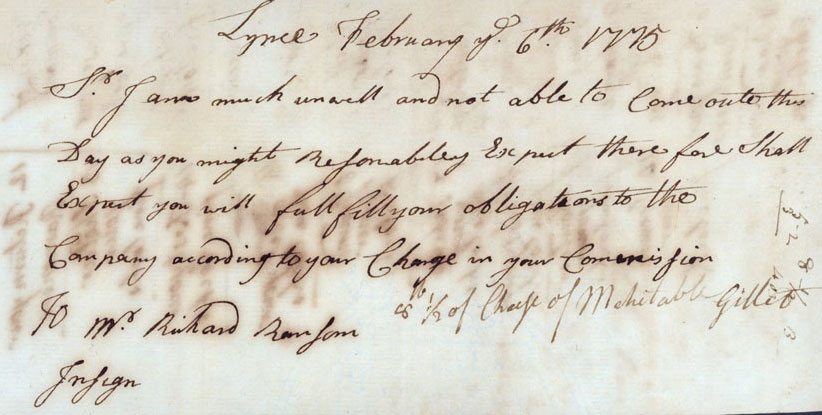 Lyme February ye 6th 1775
Sr I am much unwell and not able to Come oute this
Day as you might Resonabeley Expect there fore Shall
Expect you will full fill your obligations to the
Company according to your Charge in your Commission
8lb 1/2 of Cheese of Mehitable Gillet
To Mr Richard Ransom
Insign